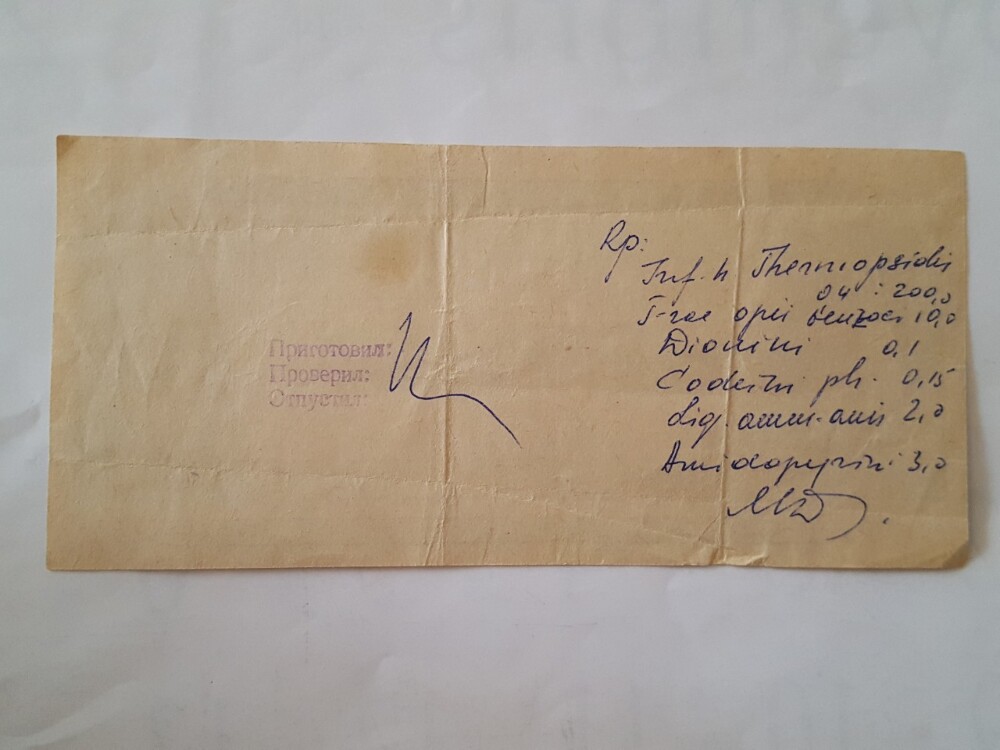 Приготовил:
Проверил:
Отпустил:
Rp:
Inf. h Thermopsidis
0,4 : 200,0
T-rae opii benzoes 10,0
Dionini 0,1
Codeini ph. 0,15
Liq. amm-anis 2,0
Amidopyrini 3,0
MD.